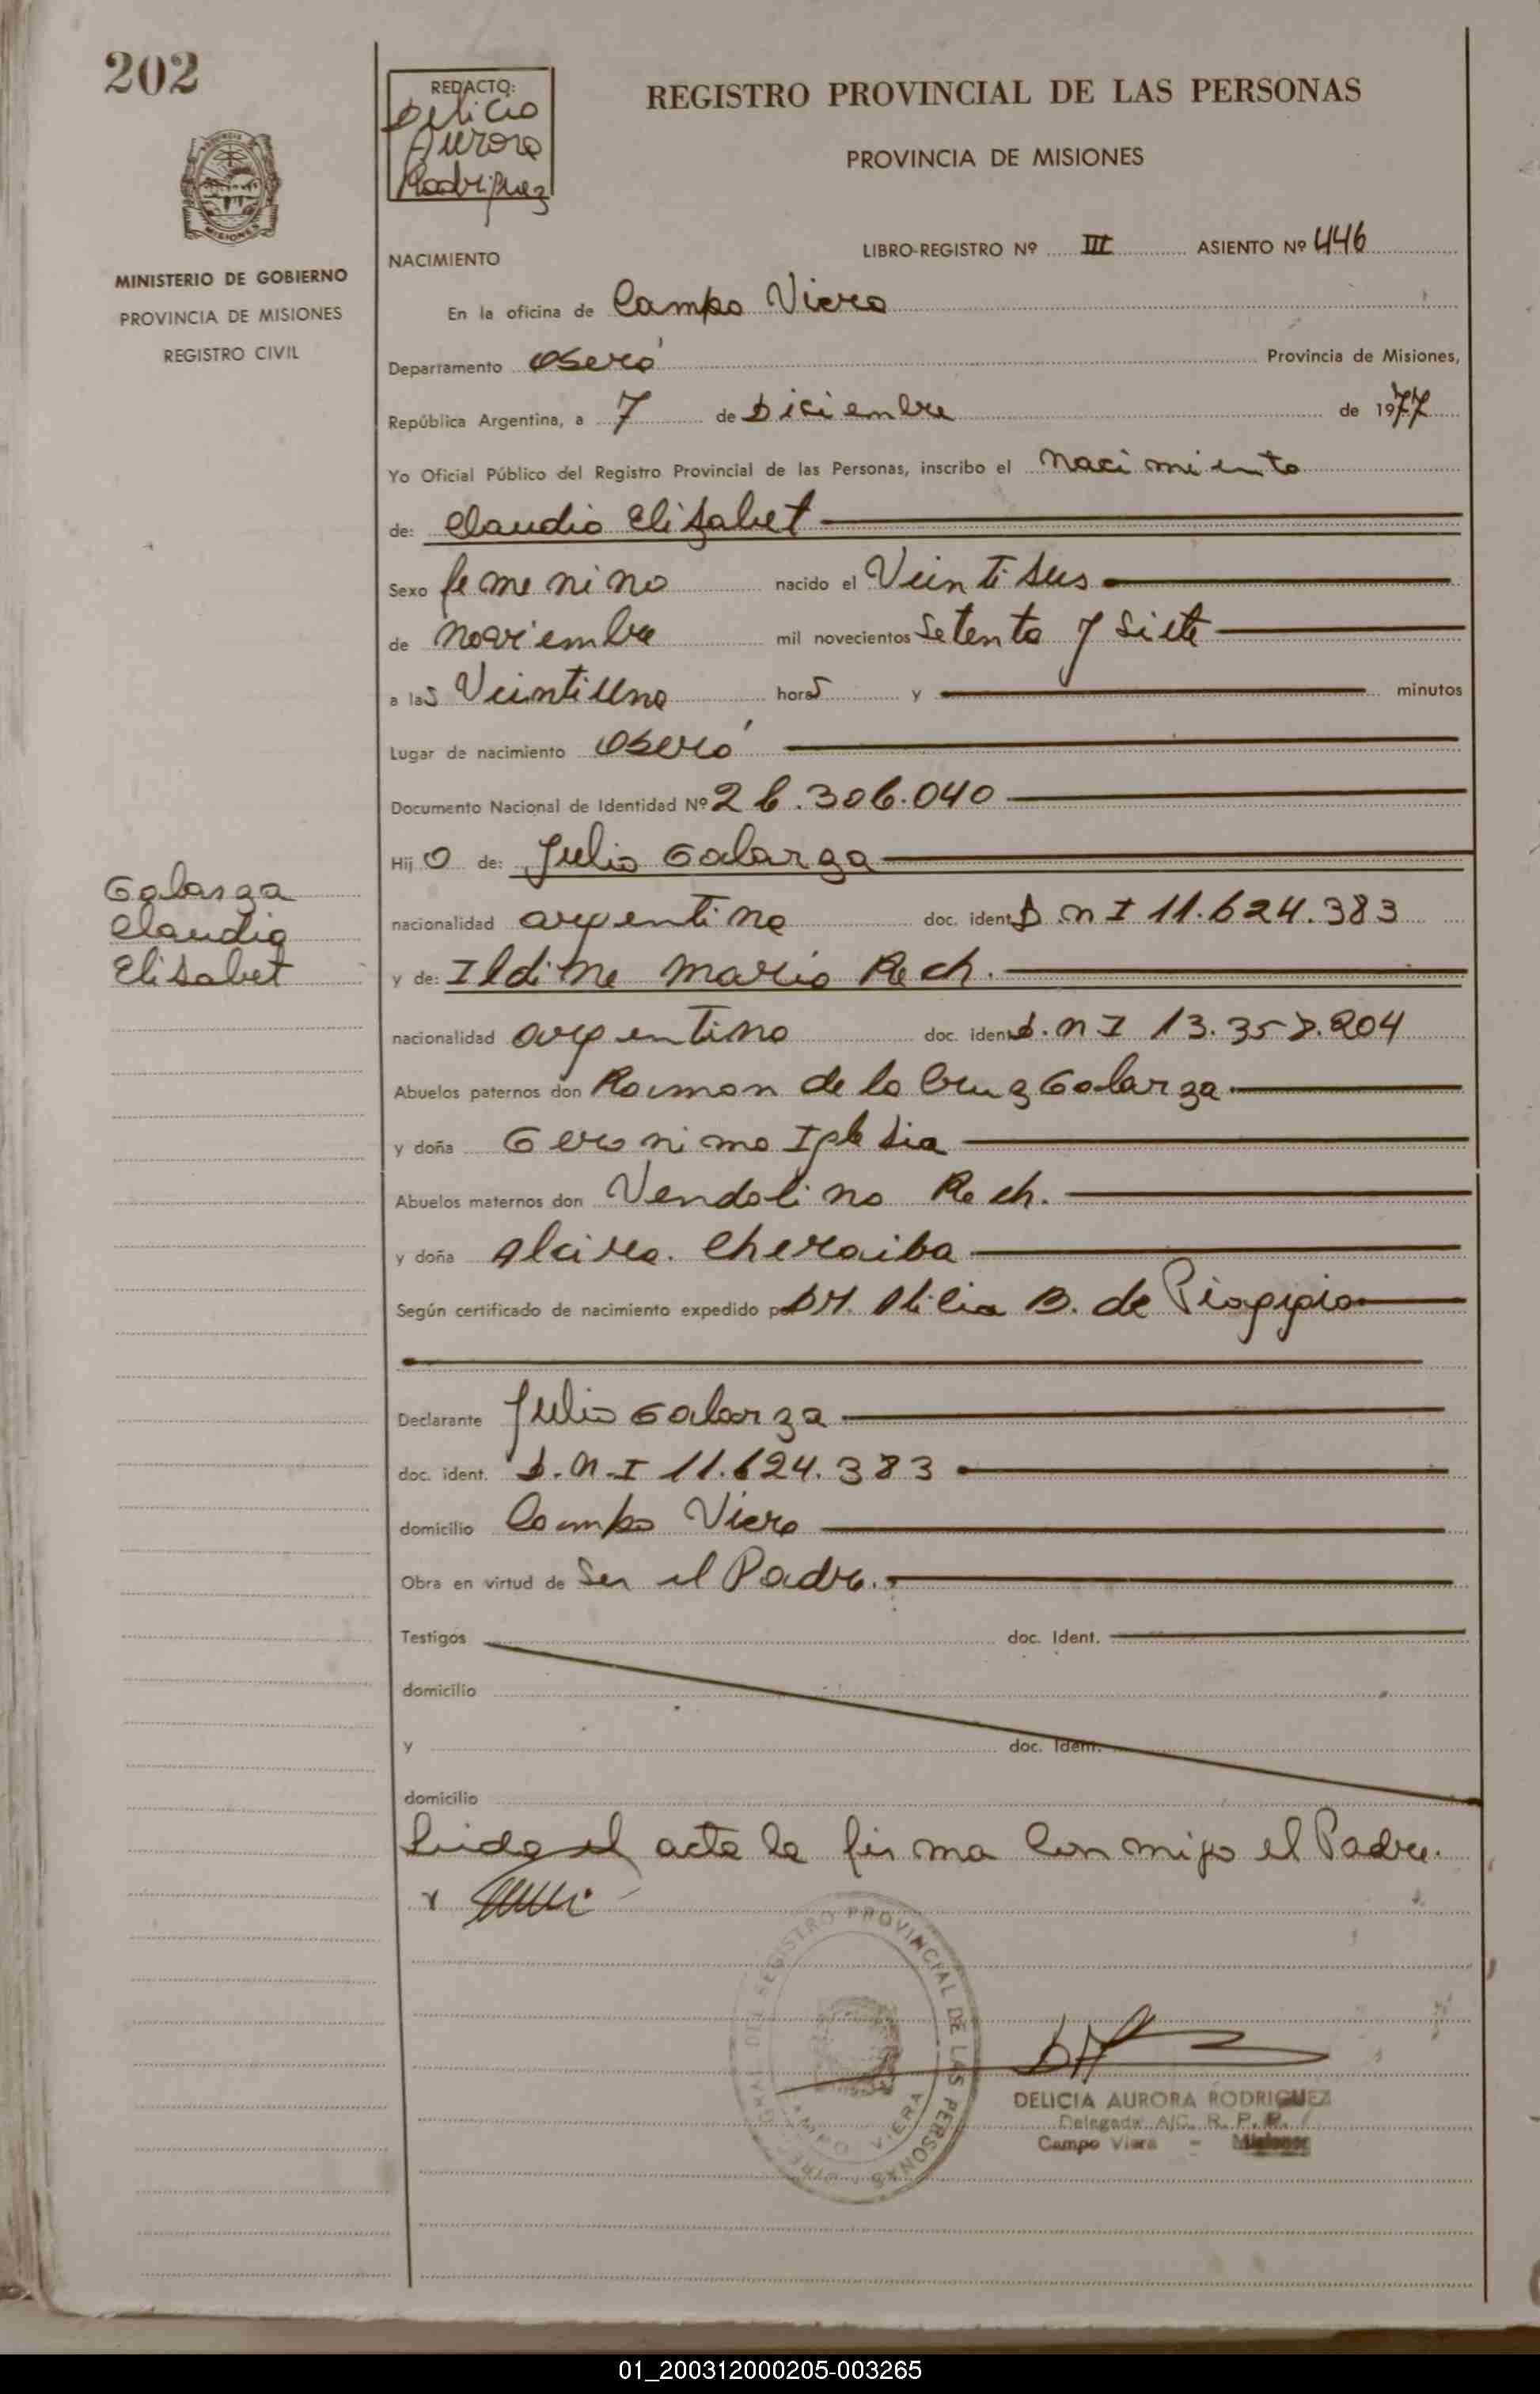 202
REDACTO:
Delicia
Aurora
Rodriguez
REGISTRO PROVINCIAL DE LAS PERSONAS
PROVINCIA DE MISIONES
MINISTERIO DE GOBIERNO
PROVINCIA DE MISIONES
REGISTRO CIVIL
NACIMIENTO
LIBRO-REGISTRO Nº III ASIENTO Nº 446
En la oficina de Campo Viera
Departamento Oberá Provincia de Misiones,
República Argentina, a 7 de Diciembre de 1977
Yo Oficial Público del Registro Provincial de las Personas, inscribo el Nacimiento
de: Claudia Elisabet
Sexo femenino nacido el Veintiseis
de Noviembre mil novecientos Setenta y Siete
a las Veintiuna horas y minutos
Lugar de nacimiento Oberá
Documento Nacional de Identidad Nº 26.306.040
Hija de: Julio Galarza
Galarza
Claudia
Elisabet
nacionalidad argentina doc. ident. D.N.I 11.624.383
y de: Ildine Maria Rech.
nacionalidad argentina doc. ident. D.N.I 13.358.204
Abuelos paternos don Ramon de la Cruz Galarza
y doña Geronima Iglesia
Abuelos maternos don Vendolino Rech.
y doña Alcira. Cheraiba
Según certificado de nacimiento expedido por Dra. B. de Piaggio
Declarante Julio Galarza
doc. ident. D.N.I 11.624.383
domicilio Campo Viera
Obra en virtud de Ser el Padre.
Testigos doc. Ident.
domicilio
y doc. Ident.
domicilio
Leida el acta la firma conmigo el Padre.
REGISTRO PROVINCIAL DE LAS PERSONAS
CAMPO VIERA
DELICIA AURORA RODRIGUEZ
Delegada A/C. R. P. P.
Campo Viera - Misiones
01_200312000205-003265